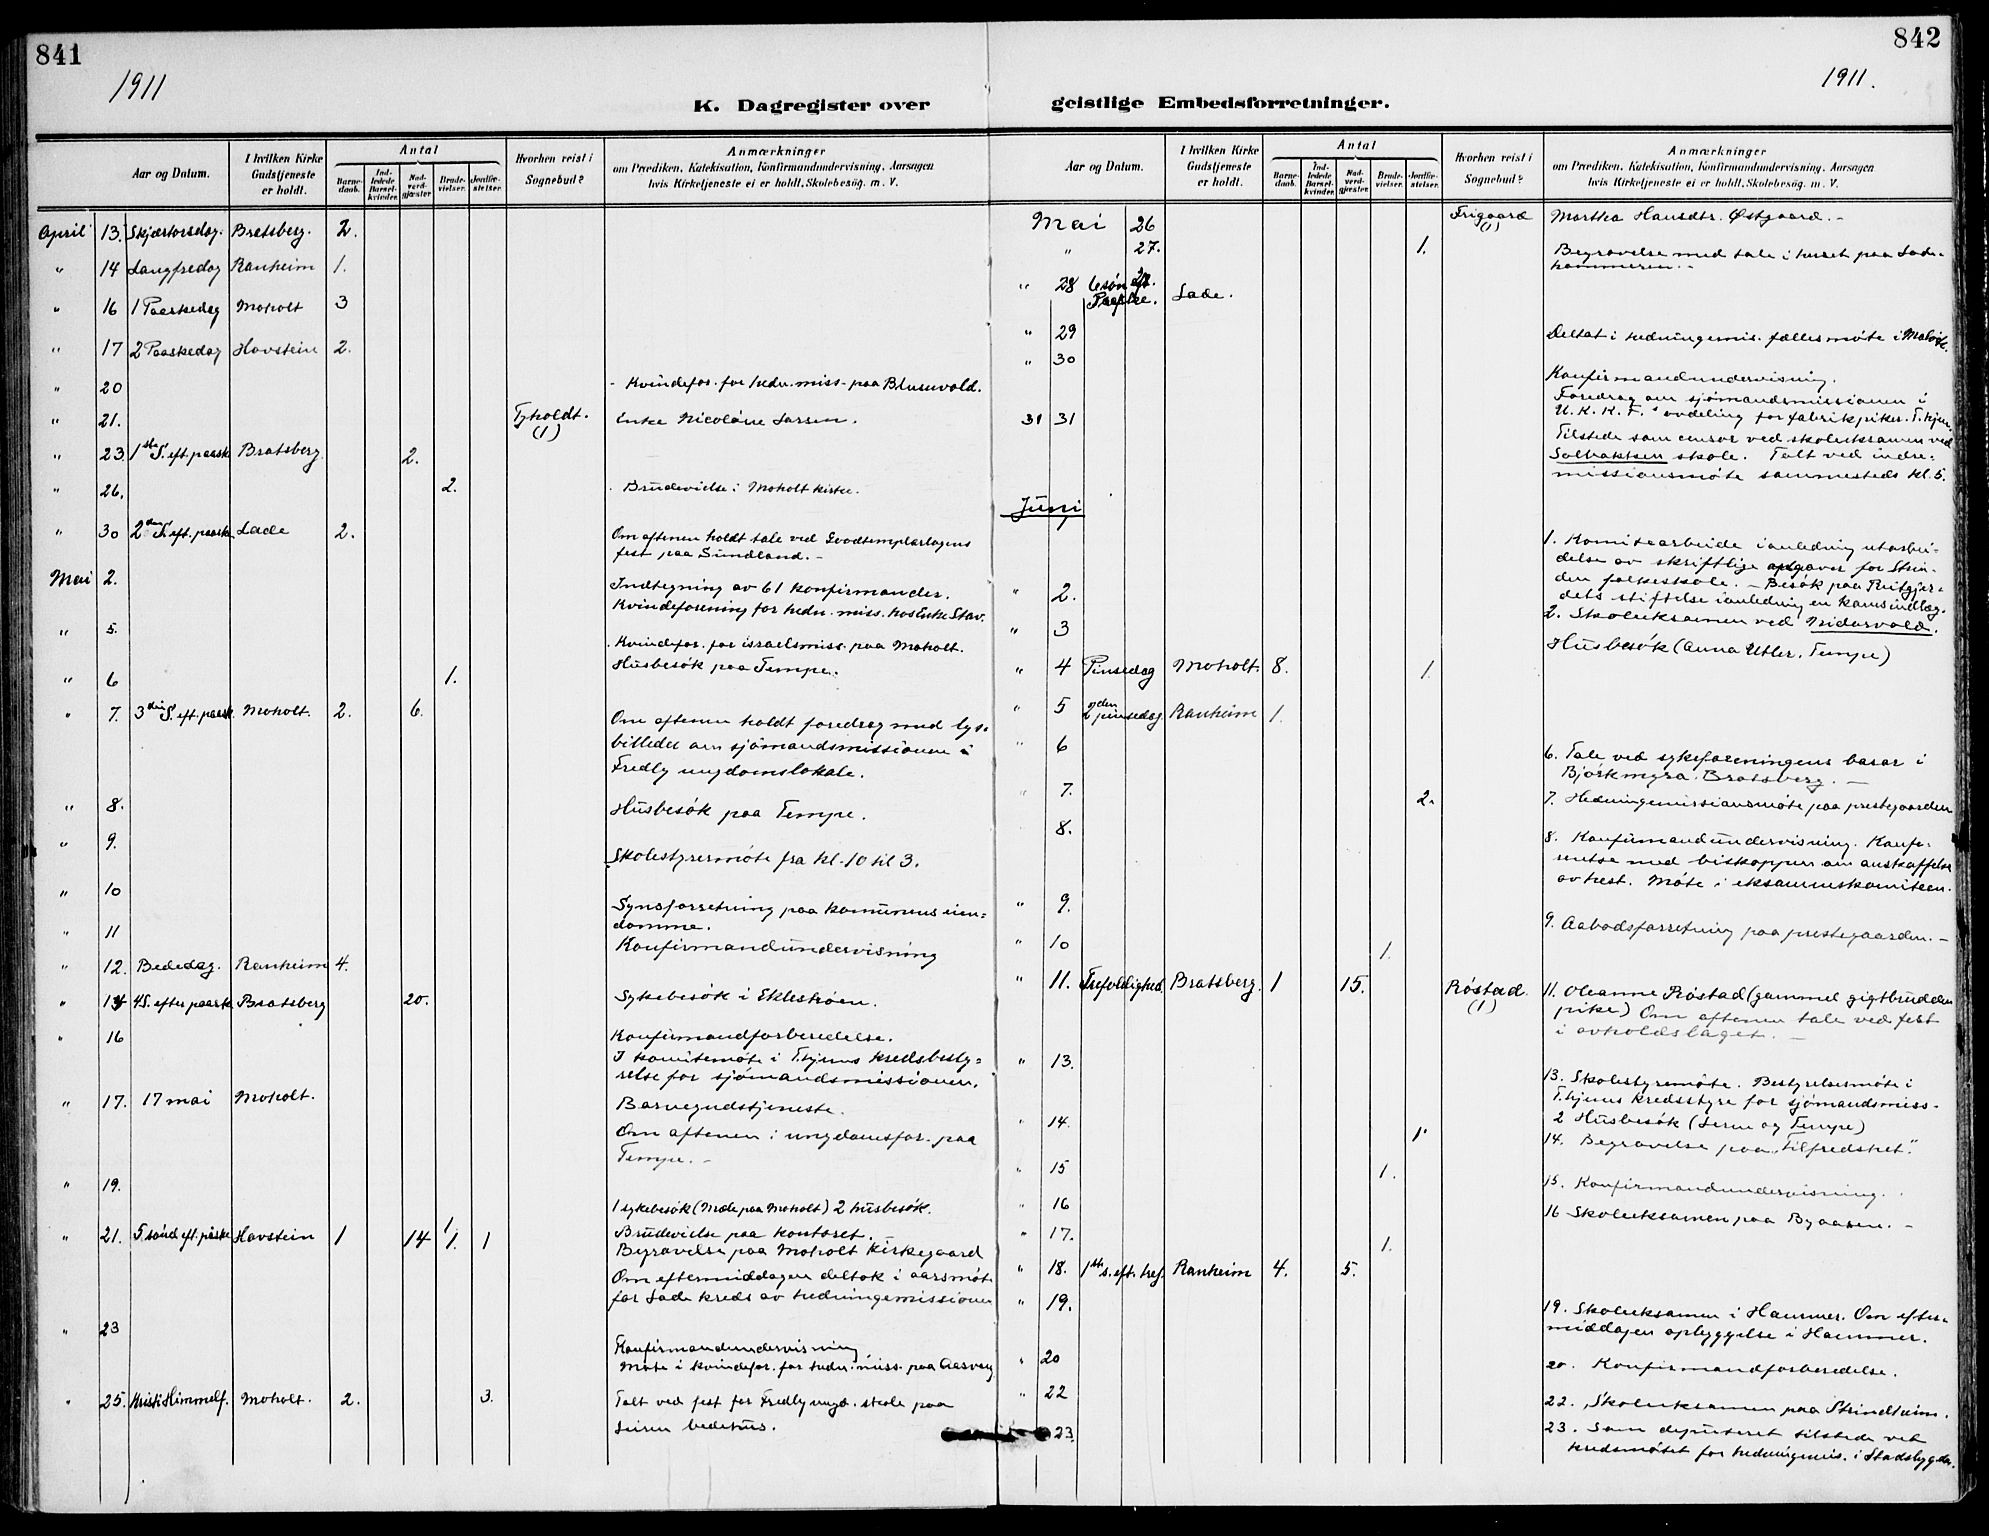 841
1911
K. Dagregister over
Aar og Datum.
I hvilken Kirke Gudstjeneste er holdt.
Antal
Barnedaab.
Indledede Barselkvinder.
Nadverdgjæster.
Brudevielser.
Jordfæstelser.
Hvorhen reist i Sognebud?
Anmærkninger
om Prædiken, Katekisation, Konfirmandundervisning, Aarsagen
hvis Kirketjeneste ei er holdt, Skolebesög. m. V.
April 13. Skjærtorsdag. Bratsberg. 2.
" 14 Langfredag Ranheim 1.
" 16 1 Paaskedag Moholt 3
" 17 2 Paaskedag Havstein 2.
" 20 Kvindefor. for hedn. miss. paa Blusuvold.
" 21. Tyholdt. (1) Enke Nicoline Larsen.
" 23 1ste S. eft. paask Bratsberg 2.
" 26. 2. Brudevielse i Moholt kirke.
" 30 2den S. eft. paask Lade 2. Om aftenen holdt tale ved Goodtemplarlagens
fest paa Sundland. -
Mai 2. Indtegning av 61 konfirmander.
Kvindeforening for hedn. miss. hos Enke Stav.
" 5. Kvindefor. for israelsmiss. paa Moholt.
Husbesøk paa Tempe.
" 6 1.
" 7. 3die S. eft. paask. Moholt. 2. 6. Om aftenen holdt foredrag med lys-
billeder om sjømandsmissionen i
Fredly ungdomslokale.
" 8. Husbesøk paa Tempe.
" 9. Skolestyremøte fra kl. 10 til 3.
" 10 Synsforretning paa komunens eien=
domme.
" 11 Konfirmandundervisning
" 12. Bededag. Ranheim 4.
" 14 4 S. efter paask Bratsberg 20. Sykebesøk i Eklestrøen.
" 16 Konfirmandforberedelse.
I komitemøte i T.hjems kredsbesty=
relse for sjømandsmissionen.
" 17. 17 mai Moholt. Barnegudstjeneste.
Om aftenen i ungdomsfor. paa
Tempe. -
" 19. 1 sykebesøk (Mæle paa Moholt) 2 husbesøk.
" 21. 5. sønd eft. påske Havstein 1 14 1. 1 Brudevielse paa kontoret. -
Begravelse paa Moholt kirkegaard
Om eftermiddagen deltok i aarsmøt
for Lade kreds av hedningemissionen
" 23 Konfirmandundervisning
Møte i kvindefor. for hedn. miss. paa Aasveg
" 25. Kristi Himmelf. Moholt. 2. 3. Talt ved fest for Fredly ungd. skole paa
Leiren bedehus.
842
1911.
geistlige Embedsforretninger.
Aar og Datum.
I hvilken Kirke Gudstjeneste er holdt.
Antal
Barnedaab.
Indledede Barselkvinder.
Nadverdgjæster.
Brudevielser.
Jordfæstelser.
Hvorhen reist i Sognebud?
Anmærkninger
om Prædiken, Katekisation, Konfirmandundervisning, Aarsagen
hvis Kirketjeneste ei er holdt, Skolebesög. m. V.
Mai 26 Frigaard (1) Martha Hansdtr. Østgaard. -
" 27. 1. Begravelse med tale i huset paa Lade-
hammeren. -
" 28 6 søn. eft. Paaske. Lade.
" 29 Deltat i hedningemis. fællesmøte i Malvik.
" 30 Konfirmandundervisning.
Foredrag om sjømandsmissionen i
U. K. K. F.s avdeling for fabrikpiker. T.hjem.
31 31 Tilstede som censor ved skoleeksamen ved
Solbakken skole. Talt ved indre=
missionsmøte sammesteds kl. 5.
Juni
1. Komitearbeide i anledning utarbei-
delse av skriftlige opgaver for Strin-
den folkeskole. - Besøk paa Ritzjer-
dets stiftelse i anledning en karnsindlæg.
" 2. 2. Skoleeksamen ved Nidarvold.
" 3 Husbesøk (Anna Utler, Tempe)
" 4 Pinsedag Moholt. 8. 1.
" 5 2den pinsedag Ranheim 1.
" 6 6. Tale ved sykeforeningens basar i
Bjørkmyra. Bratsberg. -
" 7. 2. 7. Hedningemissionsmøte paa prestegaarden
8. 8. Konfirmandundervisning. Konfe-
rentse med biskoppen om anskaffelse
av hest. Møte i eksamenskomiteen.
" 9. 9. Aabodsforretning paa prestegaarden. -
" 10 1.
" 11. Trefoldighed. Bratsberg. 1 15. Røstad. (1) 11. Oleanne Røstad (gammel gigtbrudden
pike) Om aftenen tale ved fest
i avholdslaget. -
" 13. 13. Skolestyremøte. Bestyrelsesmøte i
T.hjems kredsstyre for sjømandsmiss-
2 Husbesøk (Leren og Tempe)
" 14. 1. 14. Begravelse paa „Tilfredshet".
" 15 1. 15. Konfirmandundervisning.
" 16 16 Skoleeksamen paa Byaasen. -
" 17. 1.
" 18. 1ste s. eft. tref. Ranheim 4. 5.
" 19. 19. Skoleeksamen i Hammer. Om efter-
middagen opbyggelse i Hammer.
" 20 20. Konfirmandforberedelse.
" 22 22. Skoleeksamen paa Strindheim.
23. 23. Som deputeret tilstede ved
kredsmøtet for hedningemis. i Stadsbygden.